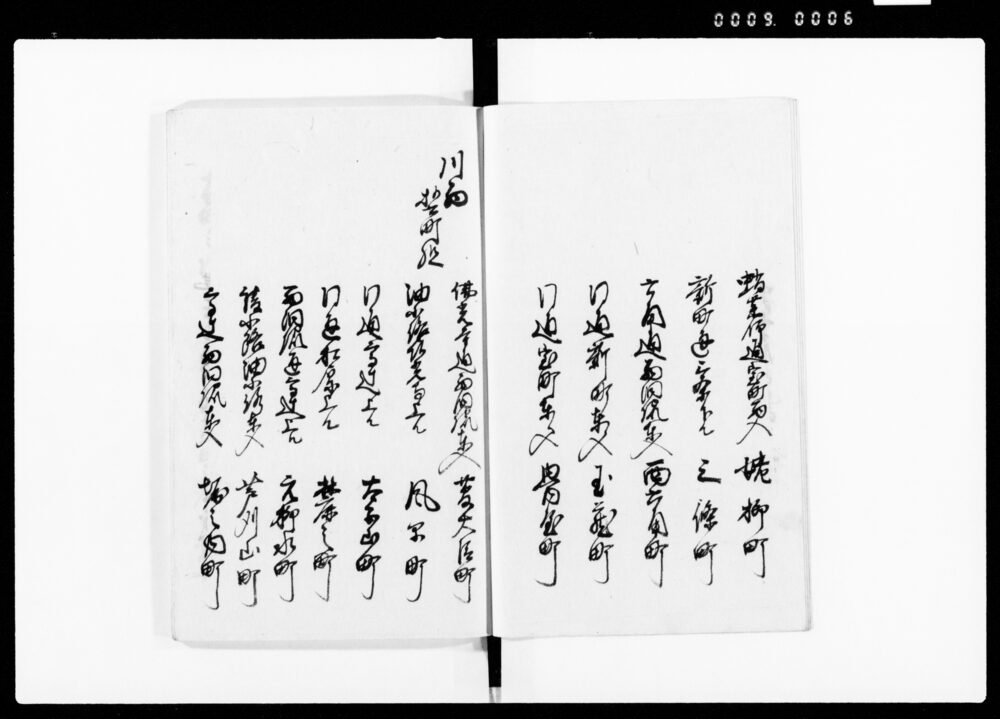 0009. 0006
蛸薬師通室町西入 姥柳町
新町通三条下ル 三條町
六角通西洞院東入 西六角町
同通新町東入 玉蔵町
同通室町東入 骨屋町
川西
拾町組
佛光寺通西洞院東入 菅大臣町
油小路佛光寺上ル 風早町
同通高辻上ル 太子山町
同通松原上ル 麩屋之町
西洞院通高辻上ル 元柳水町
綾小路油小路東入 芦刈山町
高辻西洞院東入 堀之内町